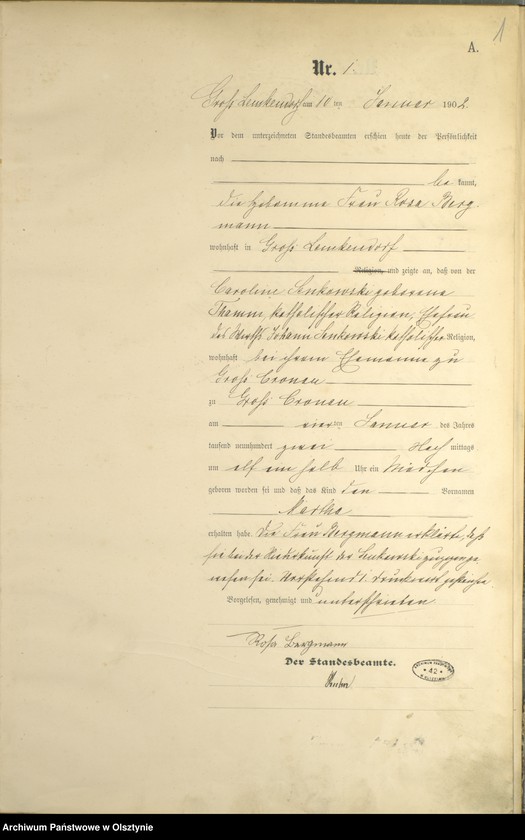 1
A.
Nr. 1.
Groß Lemkendorf am 10 ten Januar 1902
Vor dem unterzeichneten Standesbeamten erschien heute der Persönlichkeit
nach
be kannt,
die Hebamme Frau Rosa Berg-
mann
wohnhaft in Groß Lemkendorf
Religion, und zeigte an, daß von der
Caroline Senkowski geborene
Thamm, katholischer Religion, Ehefrau
des Wirths Johann Senkowski katholischer Religion,
wohnhaft bei ihrem Ehemanne zu
Groß Cronau
zu Groß Cronau
am vier ten Januar des Jahres
tausend neunhundert zwei Nach mittags
um elf ein halb Uhr ein Mädchen
geboren worden sei und daß das Kind den Vornamen
Martha
erhalten habe. Die Frau Bergmann erklärte, daß
sie bei der Niederkunft der Senkowski zugegen ge-
wesen sei. Vorstehend 1 Druckwort gestrichen
Vorgelesen, genehmigt und unterschrieben
Rosa Bergmann
Der Standesbeamte.
42
Archiwum Państwowe w Olsztynie